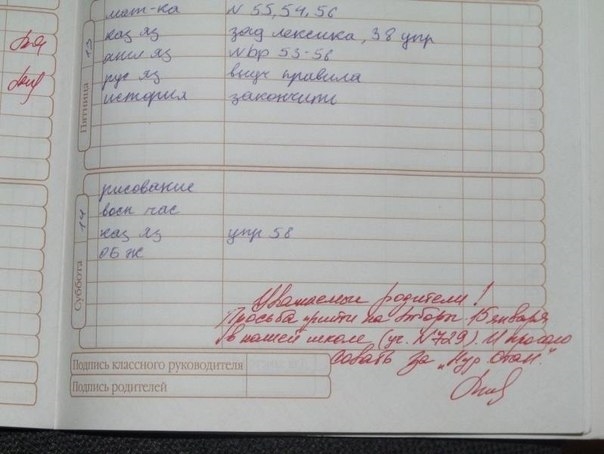 Пятница 13
мат-ка N 55, 54, 56
каз яз зад лексика, 38 упр
англ яз Wbp 53-56
рус яз выуч правила
история закончить
Суббота 14
рисование
восп час
каз яз упр 58
ОБЖ
Уважаемые родители!
Просьба прийти на 15 января
в нашей школе (уч. №729). И проголо
совать за „Нур Отан".
Подпись классного руководителя
Подпись родителей